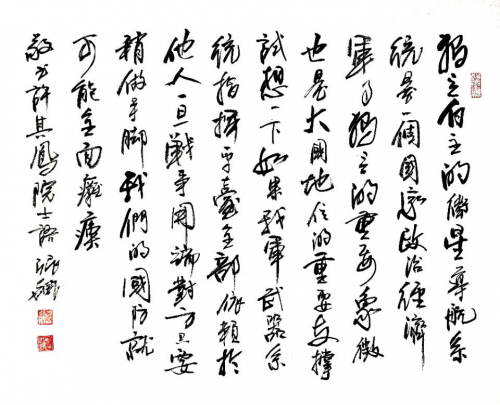 獨立自主的衛星導航系
統是一個國家政治經濟
軍事獨立的重要象徵
也是大國地位的重要支撐
試想一下如果我軍武器系
統指揮平臺全部依賴於
他人一旦戰爭開端對方只要
稍做手脚我們的國防就
可能全面癱瘓
敬书許其鳳院士語